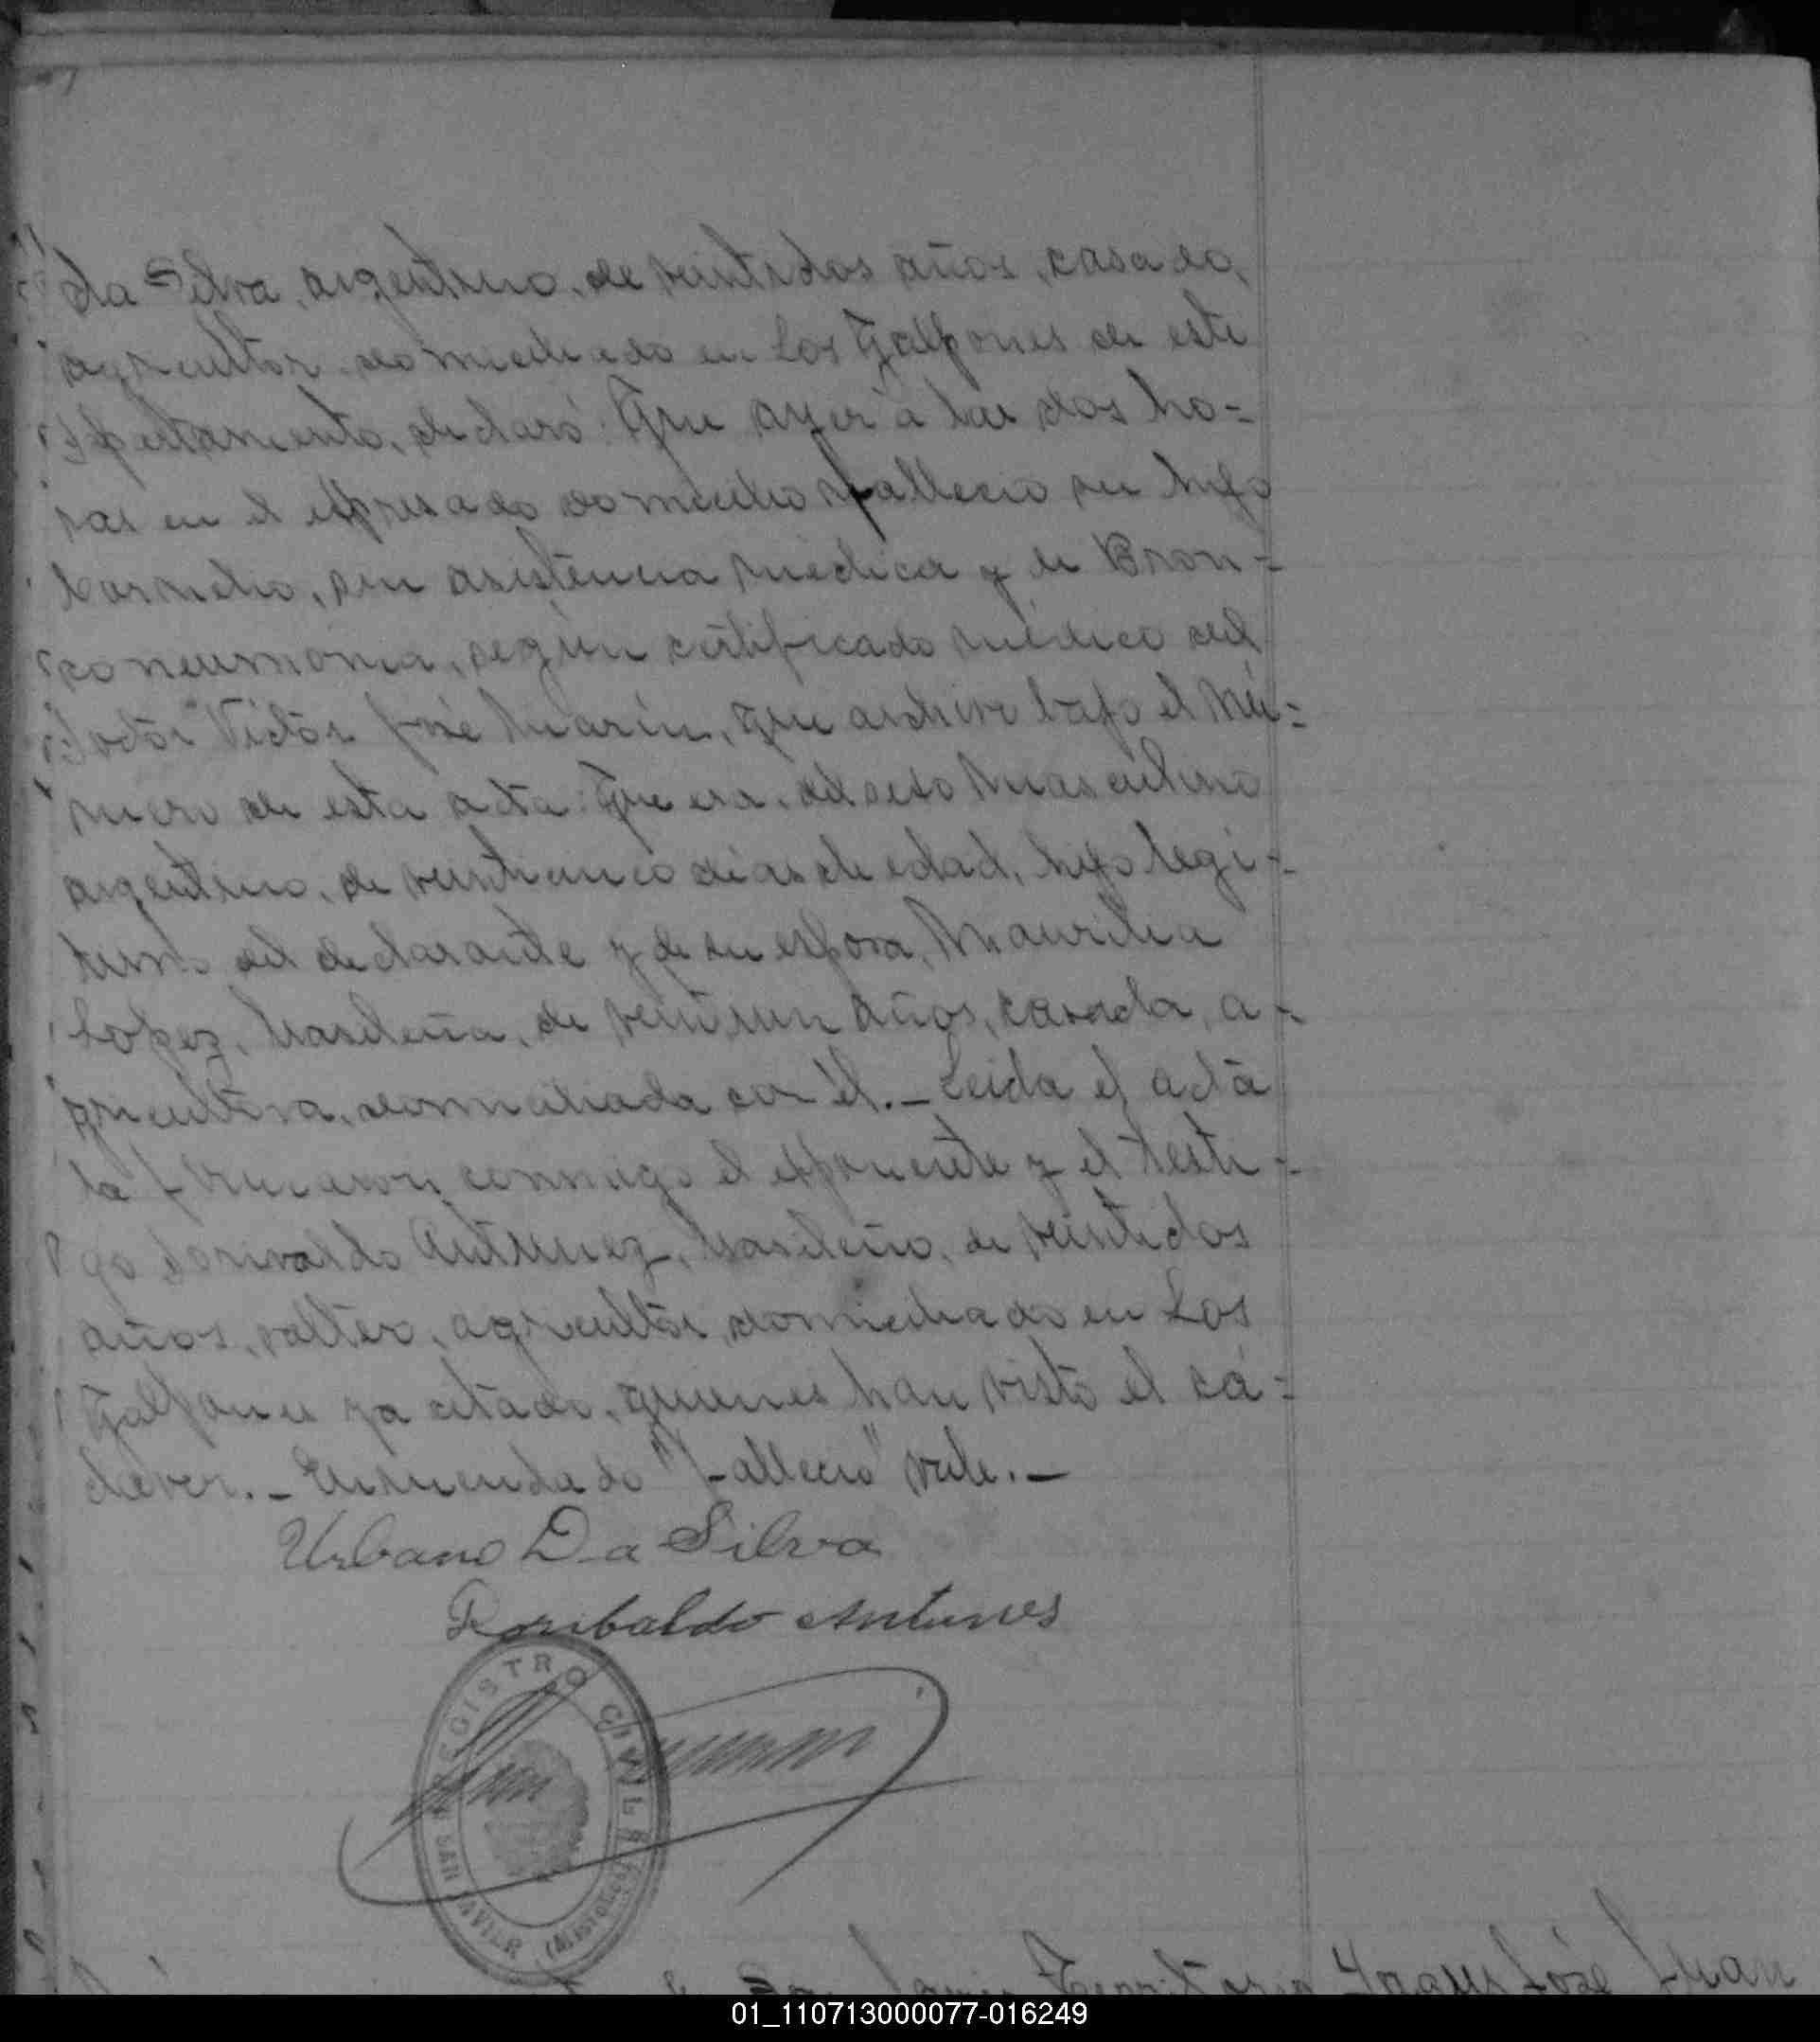 da Silva, argentino, de veintidos años, casado,
agricultor domiciliado en Los Galpones de este
Departamento, declaró: Que ayer a las dos ho=
ras en el expresado domicilio falleció su hijo
Cornelio, sin asistencia médica y de Bron=
coneumonia, según certificado médico del
doctor Victor José Marín, que archivo bajo el nú=
mero de esta acta: Que era del sexo masculino
argentino, de veinticinco dias de edad, hijo legí=
timo del declarante y de su esposa, Maurilia
Lopez, brasileña, de veintiun años, casada, a=
gricultora, domiciliada con él.— Leida el acta
la firmaron conmigo el exponente y el testi=
go Dorivaldo Antunez, brasileño, de veintidos
años, soltero, agricultor, domiciliado en Los
Galpones ya citado, quienes han visto el ca=
daver.— Enmendado "falleció" vale.—
Urbano Da Silva
Doribaldo Antunes
REGISTRO CIVIL
SAN JAVIER (MISIONES)
San Javier Territorio José Juan
01_110713000077-016249